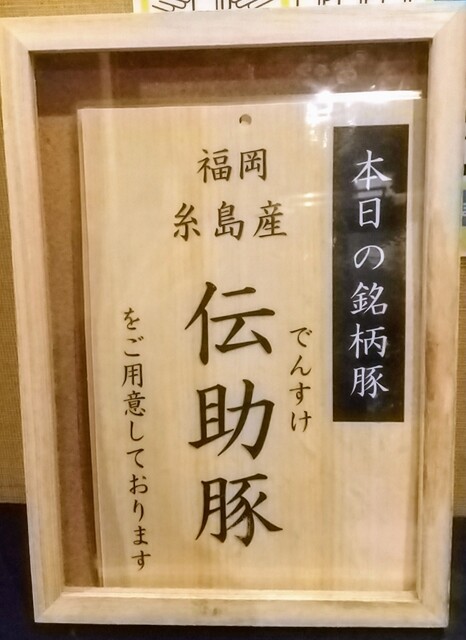 本日の銘柄豚
福岡
糸島産
でんすけ
伝助豚
をご用意しております